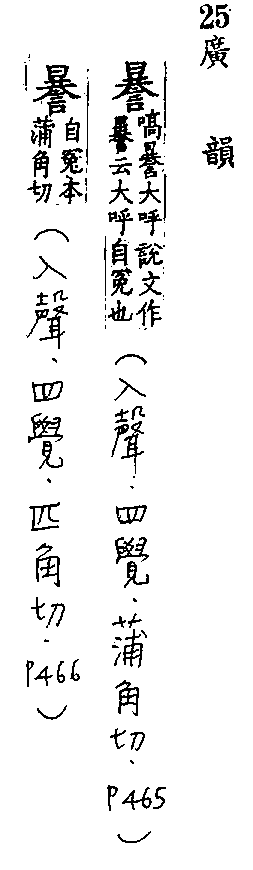 25廣韻
謈嗃謈大呼說文作
謈云大呼自冤也
(入聲.四覺.蒲角切.P465)
謈自冤本
蒲角切
(入聲.四覺.匹角切.P466)